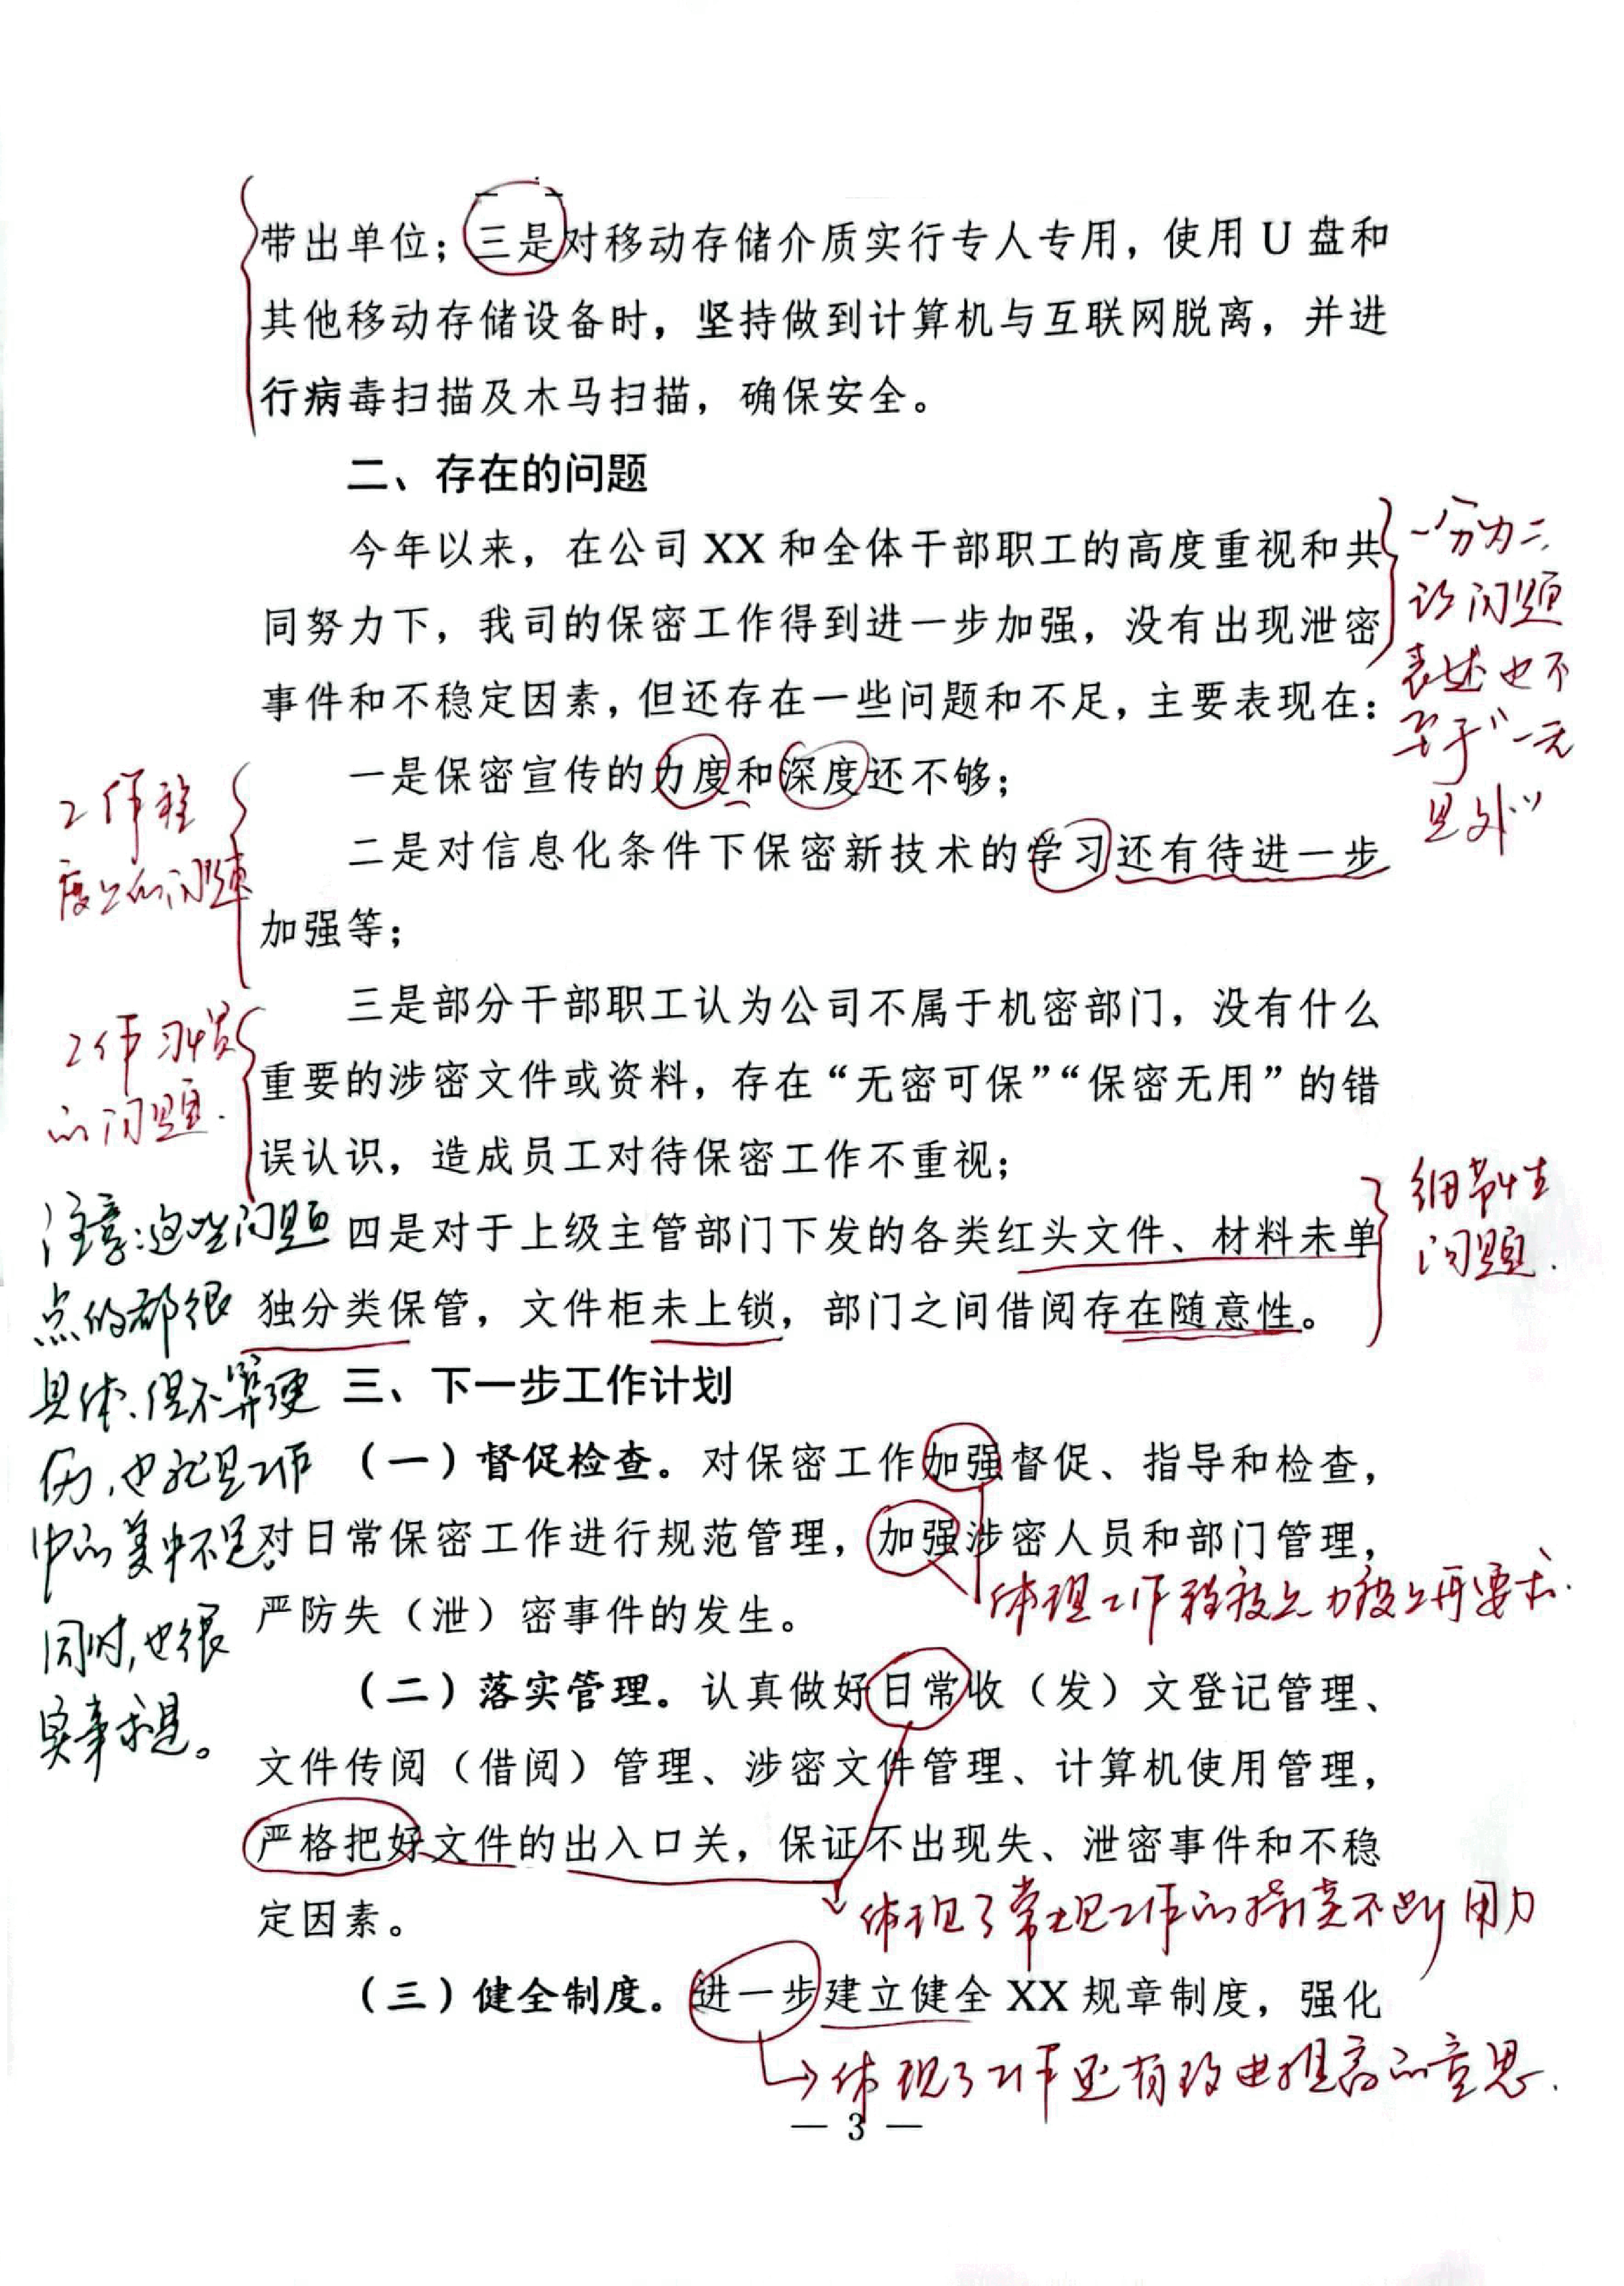 带出单位；三是对移动存储介质实行专人专用，使用 U 盘和
其他移动存储设备时，坚持做到计算机与互联网脱离，并进
行病毒扫描及木马扫描，确保安全。
二、存在的问题
今年以来，在公司 XX 和全体干部职工的高度重视和共
同努力下，我司的保密工作得到进一步加强，没有出现泄密
事件和不稳定因素，但还存在一些问题和不足，主要表现在：
一分为二，
说问题
表述也不
至于“一无
是处”
一是保密宣传的力度和深度还不够；
二是对信息化条件下保密新技术的学习还有待进一步
加强等；
工作程
度上的问题
三是部分干部职工认为公司不属于机密部门，没有什么
重要的涉密文件或资料，存在“无密可保”“保密无用”的错
误认识，造成员工对待保密工作不重视；
工作习惯
的问题.
四是对于上级主管部门下发的各类红头文件、材料未单
独分类保管，文件柜未上锁，部门之间借阅存在随意性。
细节性
问题.
注意：这些问题
点的都很
具体、但不算硬
伤，也就是工作
中的美中不足。
同时，也很
实事求是。
三、下一步工作计划
（一）督促检查。对保密工作加强督促、指导和检查，
对日常保密工作进行规范管理，加强涉密人员和部门管理，
严防失（泄）密事件的发生。
体现工作程度上力度上再要求.
（二）落实管理。认真做好日常收（发）文登记管理、
文件传阅（借阅）管理、涉密文件管理、计算机使用管理，
严格把好文件的出入口关，保证不出现失、泄密事件和不稳
定因素。
体现了常规工作的持续不断用力
（三）健全制度。进一步建立健全 XX 规章制度，强化
体现了工作还有改进提高的意思.
— 3 —